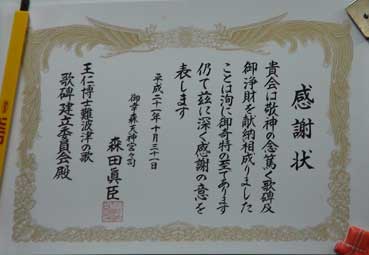 感謝状
貴会は敬神の念篤く歌碑及
御浄財を献納相成りました
ことは洵に御奇特の至であります
仍て茲に深く感謝の意を
表します
平成二十一年十月三十一日
御幸森天神宮宮司
森田眞臣
王仁博士難波津の歌
歌碑建立委員会殿